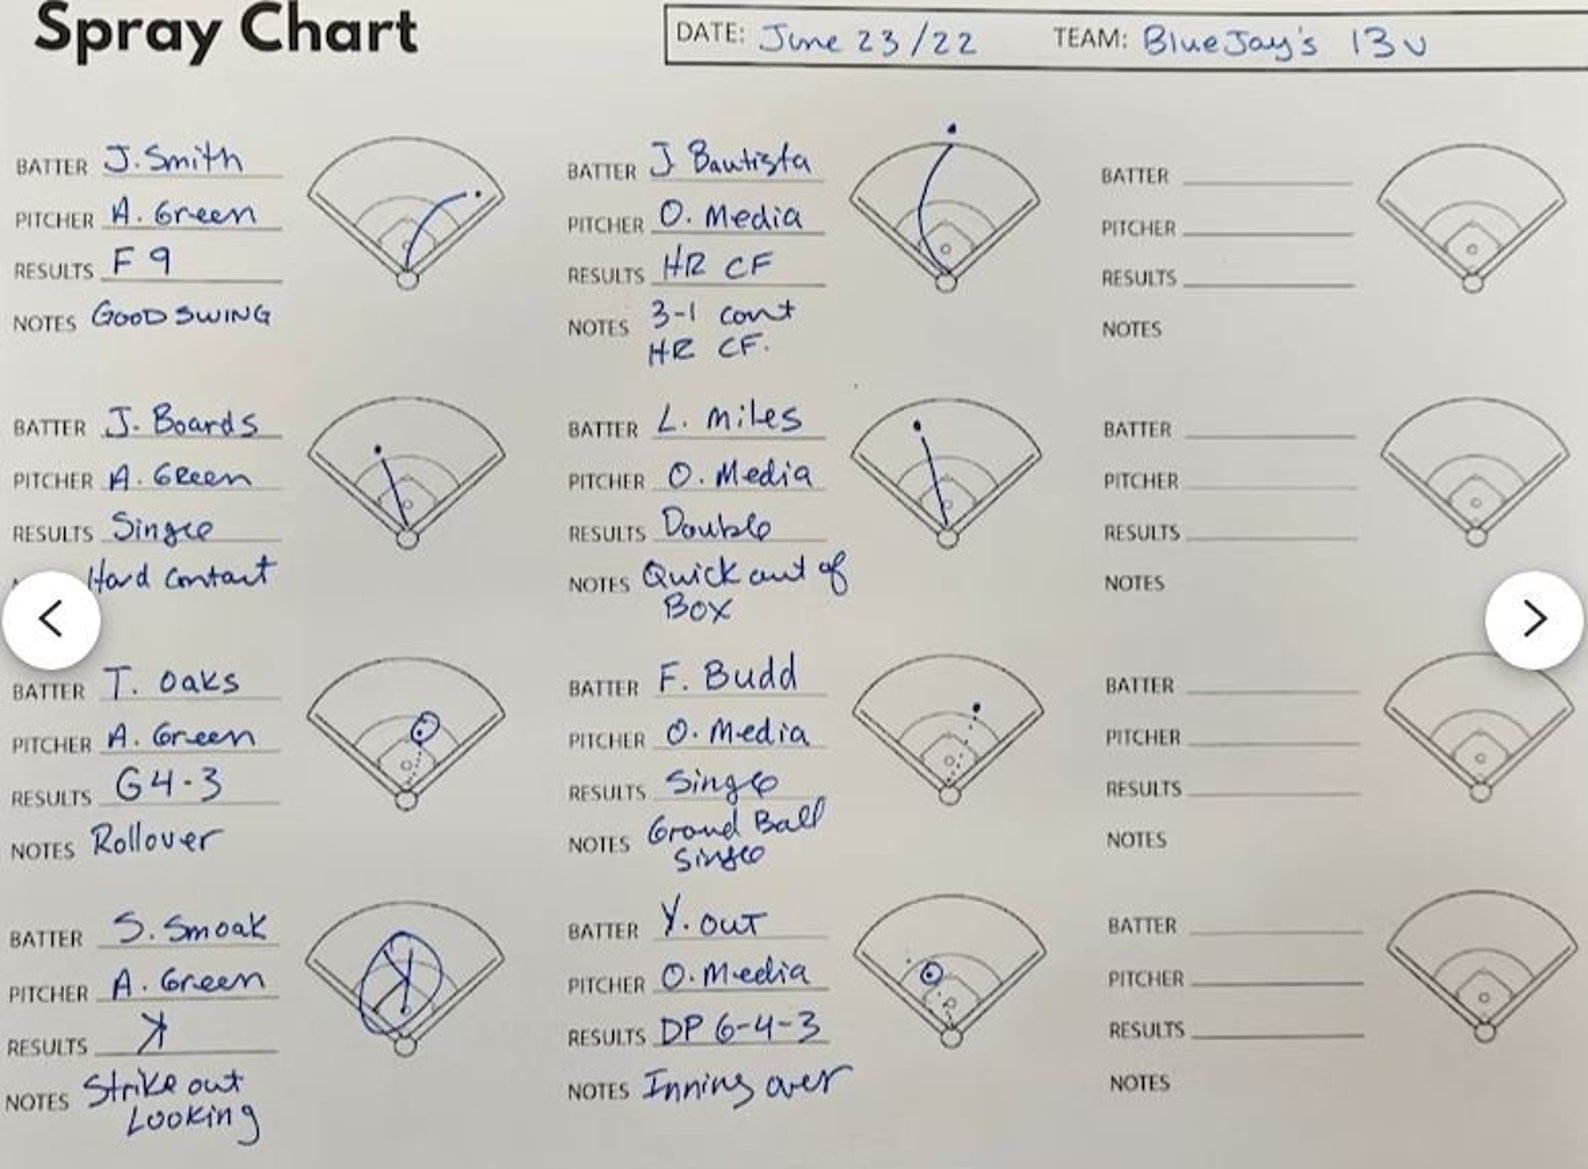 Spray Chart
DATE: June 23/22 TEAM: BlueJay's 13u
BATTER J. Smith
PITCHER A. Green
RESULTS F 9
NOTES GOOD SWING
BATTER J. Boards
PITCHER A. Green
RESULTS Single
Hard Contact
BATTER T. Oaks
PITCHER A. Green
RESULTS G 4-3
NOTES Rollover
BATTER S. Smoak
PITCHER A. Green
RESULTS ꓘ
NOTES Strike out
Looking
BATTER J Bautista
PITCHER O. Media
RESULTS HR CF
NOTES 3-1 count
HR CF.
BATTER L. Miles
PITCHER O. Media
RESULTS Double
NOTES Quick out of
Box
BATTER F. Budd
PITCHER O. Media
RESULTS Single
NOTES Ground Ball
Single
BATTER Y. out
PITCHER O. Media
RESULTS DP 6-4-3
NOTES Inning over
BATTER
PITCHER
RESULTS
NOTES
BATTER
PITCHER
RESULTS
NOTES
BATTER
PITCHER
RESULTS
NOTES
BATTER
PITCHER
RESULTS
NOTES